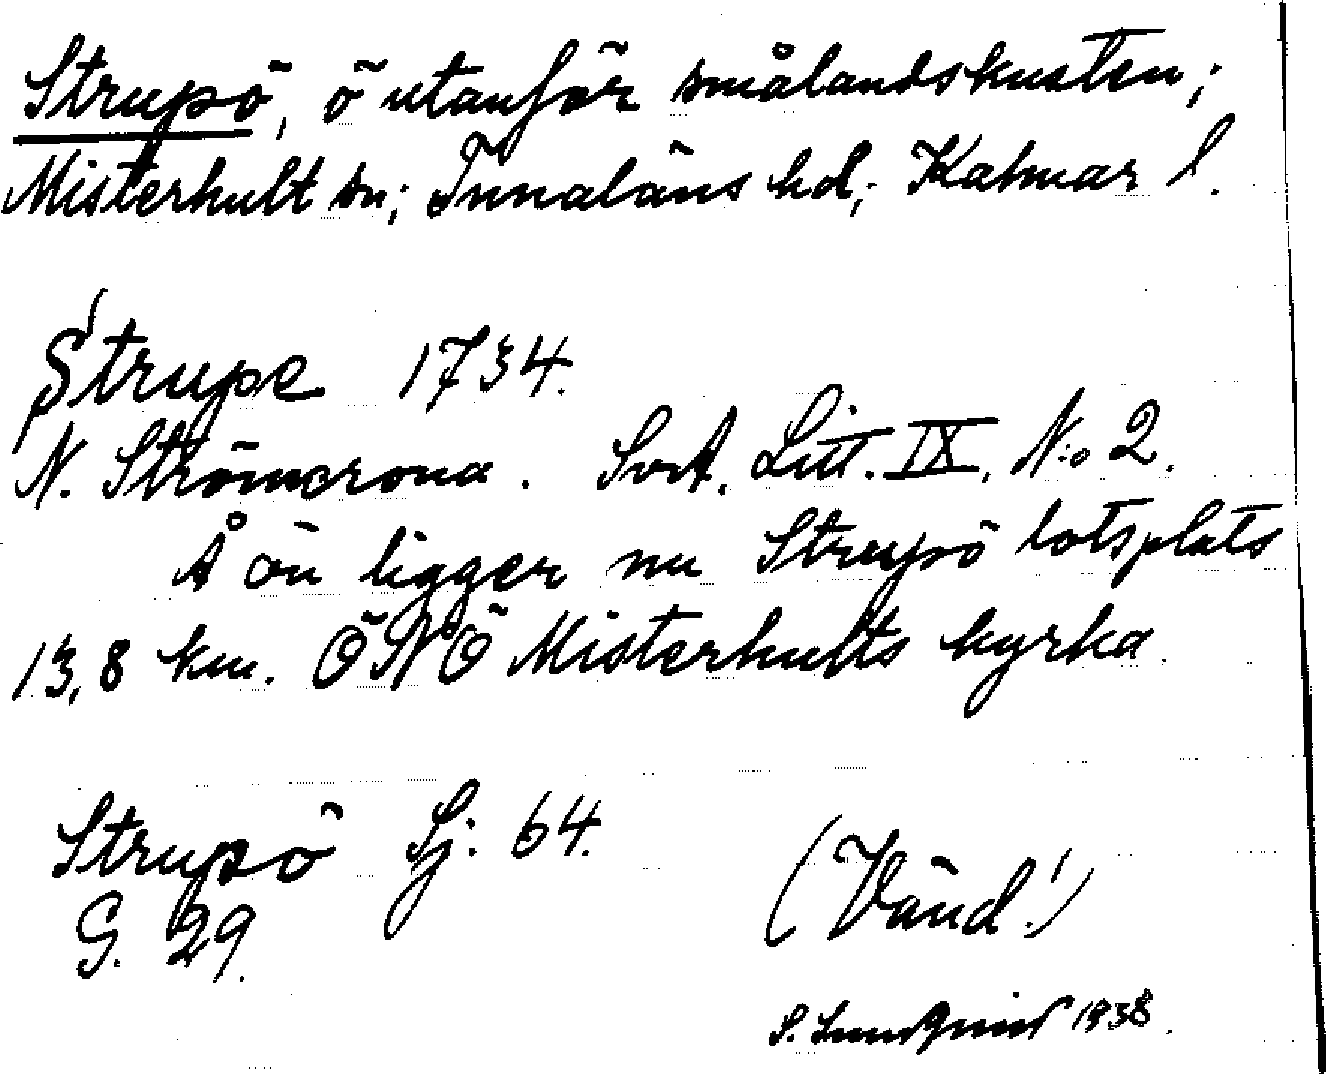 Strupö, ö utanför smålandskusten;
Misterhult sn; Tunaläns hd; Kalmar l.
Strupe 1734.
N. Strömcrona. SvA. Litt. IX, N:o 2.
Å ön ligger nu Strupö lotsplats
13,8 km. ÖNÖ Misterhults kyrka
Strupö Sj. 64.
G. 29.
(Vänd!)
S. 1938.